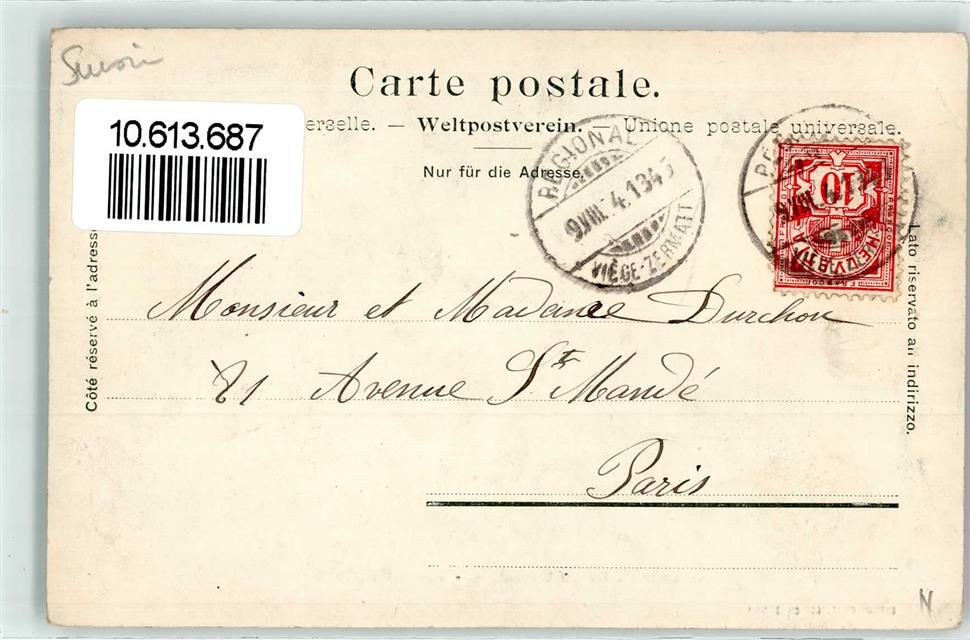 Suisse
Carte postale.
10.613.687
erselle. — Weltpostverein. — Unione postale universale.
Nur für die Adresse.
REGIONAL
9.VIII.04.1345
VIÈGE-ZERMATT
10
HELVETIA
FRANCO
Côté réservé à l'adresse
Lato riservato an indirizzo.
Monsieur et Madame Durchon
21 Avenue Ste Mandé
Paris
N